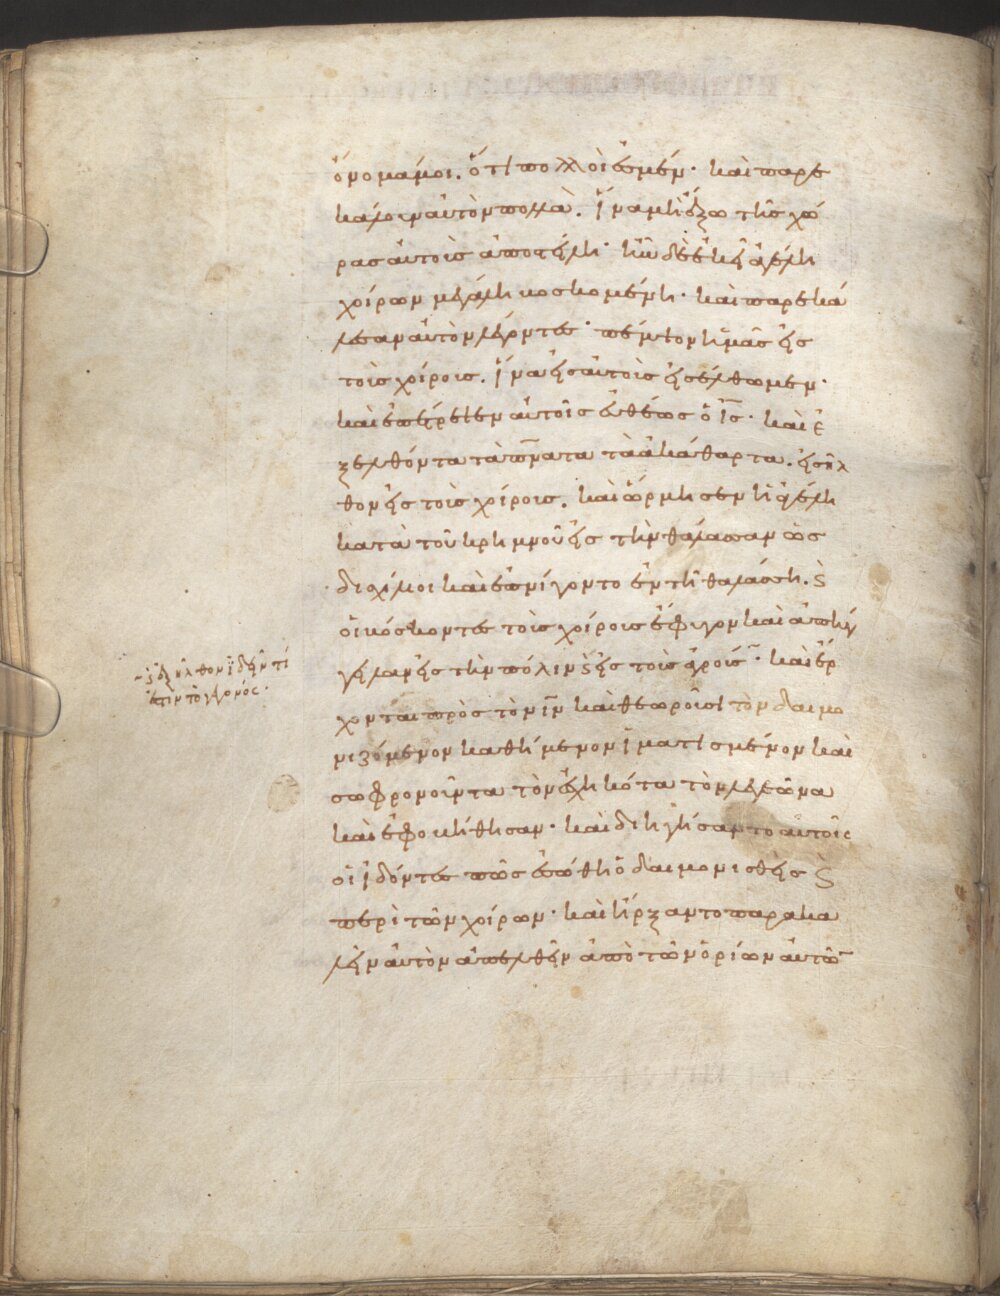 ὄνομά μοι. ὅτι πολλοὶ ἐσμέν· καὶ παρε
κάλουν αὐτὸν πολλὰ. ἵνα μὴ ἔξω τῆς χώ
ρας αὐτοὺς ἀποστέλη· ἦν δὲ ἐκεῖ ἀγέλη
χοίρων μεγάλη βοσκομένη· καὶ παρεκά
λεσαν αὐτὸν λέγοντες· πέμψον ἡμᾶς εἰς
τοὺς χοίρους. ἵνα εἰς αὐτοὺς εἰσέλθωμεν·
καὶ ἐπέτρεψεν αὐτοῖς εὐθέως ὁ ις· καὶ ἐ
ξελθόντα τὰ πνατα τὰ ἀκάθαρτα. εἰσῆλ
θον εἰς τοὺς χοίρους. καὶ ὥρμησεν ἡ ἀγέλη
κατὰ τοῦ κρημνοῦ εἰς τὴν θάλασσαν ὡς
δισχίλιοι καὶ ἐπνίγοντο ἐν τῆ θαλάσση. ϛ
οἱ βόσκοντες τοὺς χοίρους ἔφυγον καὶ ἀπήγ
γειλαν εἰς τὴν πόλιν ϛ εἰς τοὺς ἀγρούς ·~ καὶ ἔρ
χονται πρὸς τὸν ιν καὶ θεωροῦσι τὸν δαιμο
νιζόμενον καθήμενον ἱματισμένον καὶ
σωφρονοῦντα τὸν ἐσχηκότα τὸν λεγεῶνα
καὶ ἐφοβήθησαν· καὶ διηγήσαντο αὐτοῖς
οἱ ἰδόντες πῶς ἐσώθη ὁ δαιμονισθεὶς ϛ
περὶ τῶν χοίρων· καὶ ἤρξαντο παρακα
λεῖν αὐτὸν ἀπελθεῖν ἀπὸ τῶν ὁρίων αὐτῶ
~ ϛ ἐξῆλθον ἰδεῖν τί
ἐστὶν τὸ γεγονός·